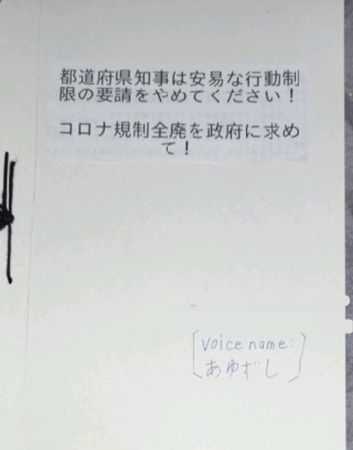 都道府県知事は安易な行動制
限の要請をやめてください！
コロナ規制全廃を政府に求め
て！
voice name:
あゆずし